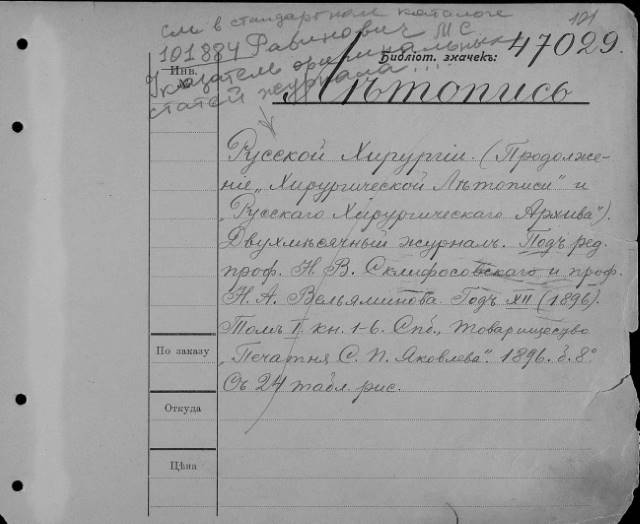 см в стандартном каталоге
101884 Рабинович МС
Указатель оригинальных
статей журнала...
101
Инв.
Библіот. значекъ: 47029.
Лѣтопись
Русской Хирургіи. (Продолже-
ніе „Хирургической Лѣтописи" и
„Русскаго Хирургическаго Архива").
Двухмѣсячный журналъ. Подъ ред.
проф. Н. В. Склифосовскаго и проф.
Н. А. Вельяминова. Годъ XII (1896).
Томъ I. кн. 1-6. Спб., Товарищество
„Печатня С. П. Яковлева". 1896. б. 8°
Съ 24 табл. рис.
По заказу
Откуда
Цѣна